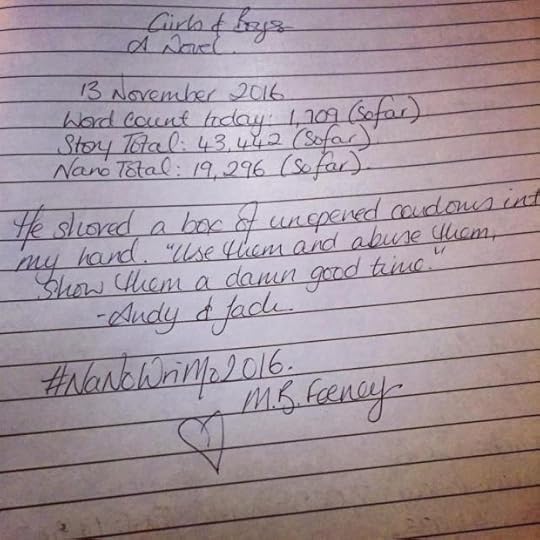 Girls & Boys
A Novel.
13 November 2016
Word Count today: 1,709 (so far)
Story Total: 43,442 (so far)
Nano Total: 19,296 (so far).
He shoved a box of unopened condoms int
my hand. "Use them and abuse them,
show them a damn good time."
- Andy & Jack.
#NaNoWriMo2016.
M.B. Feeney